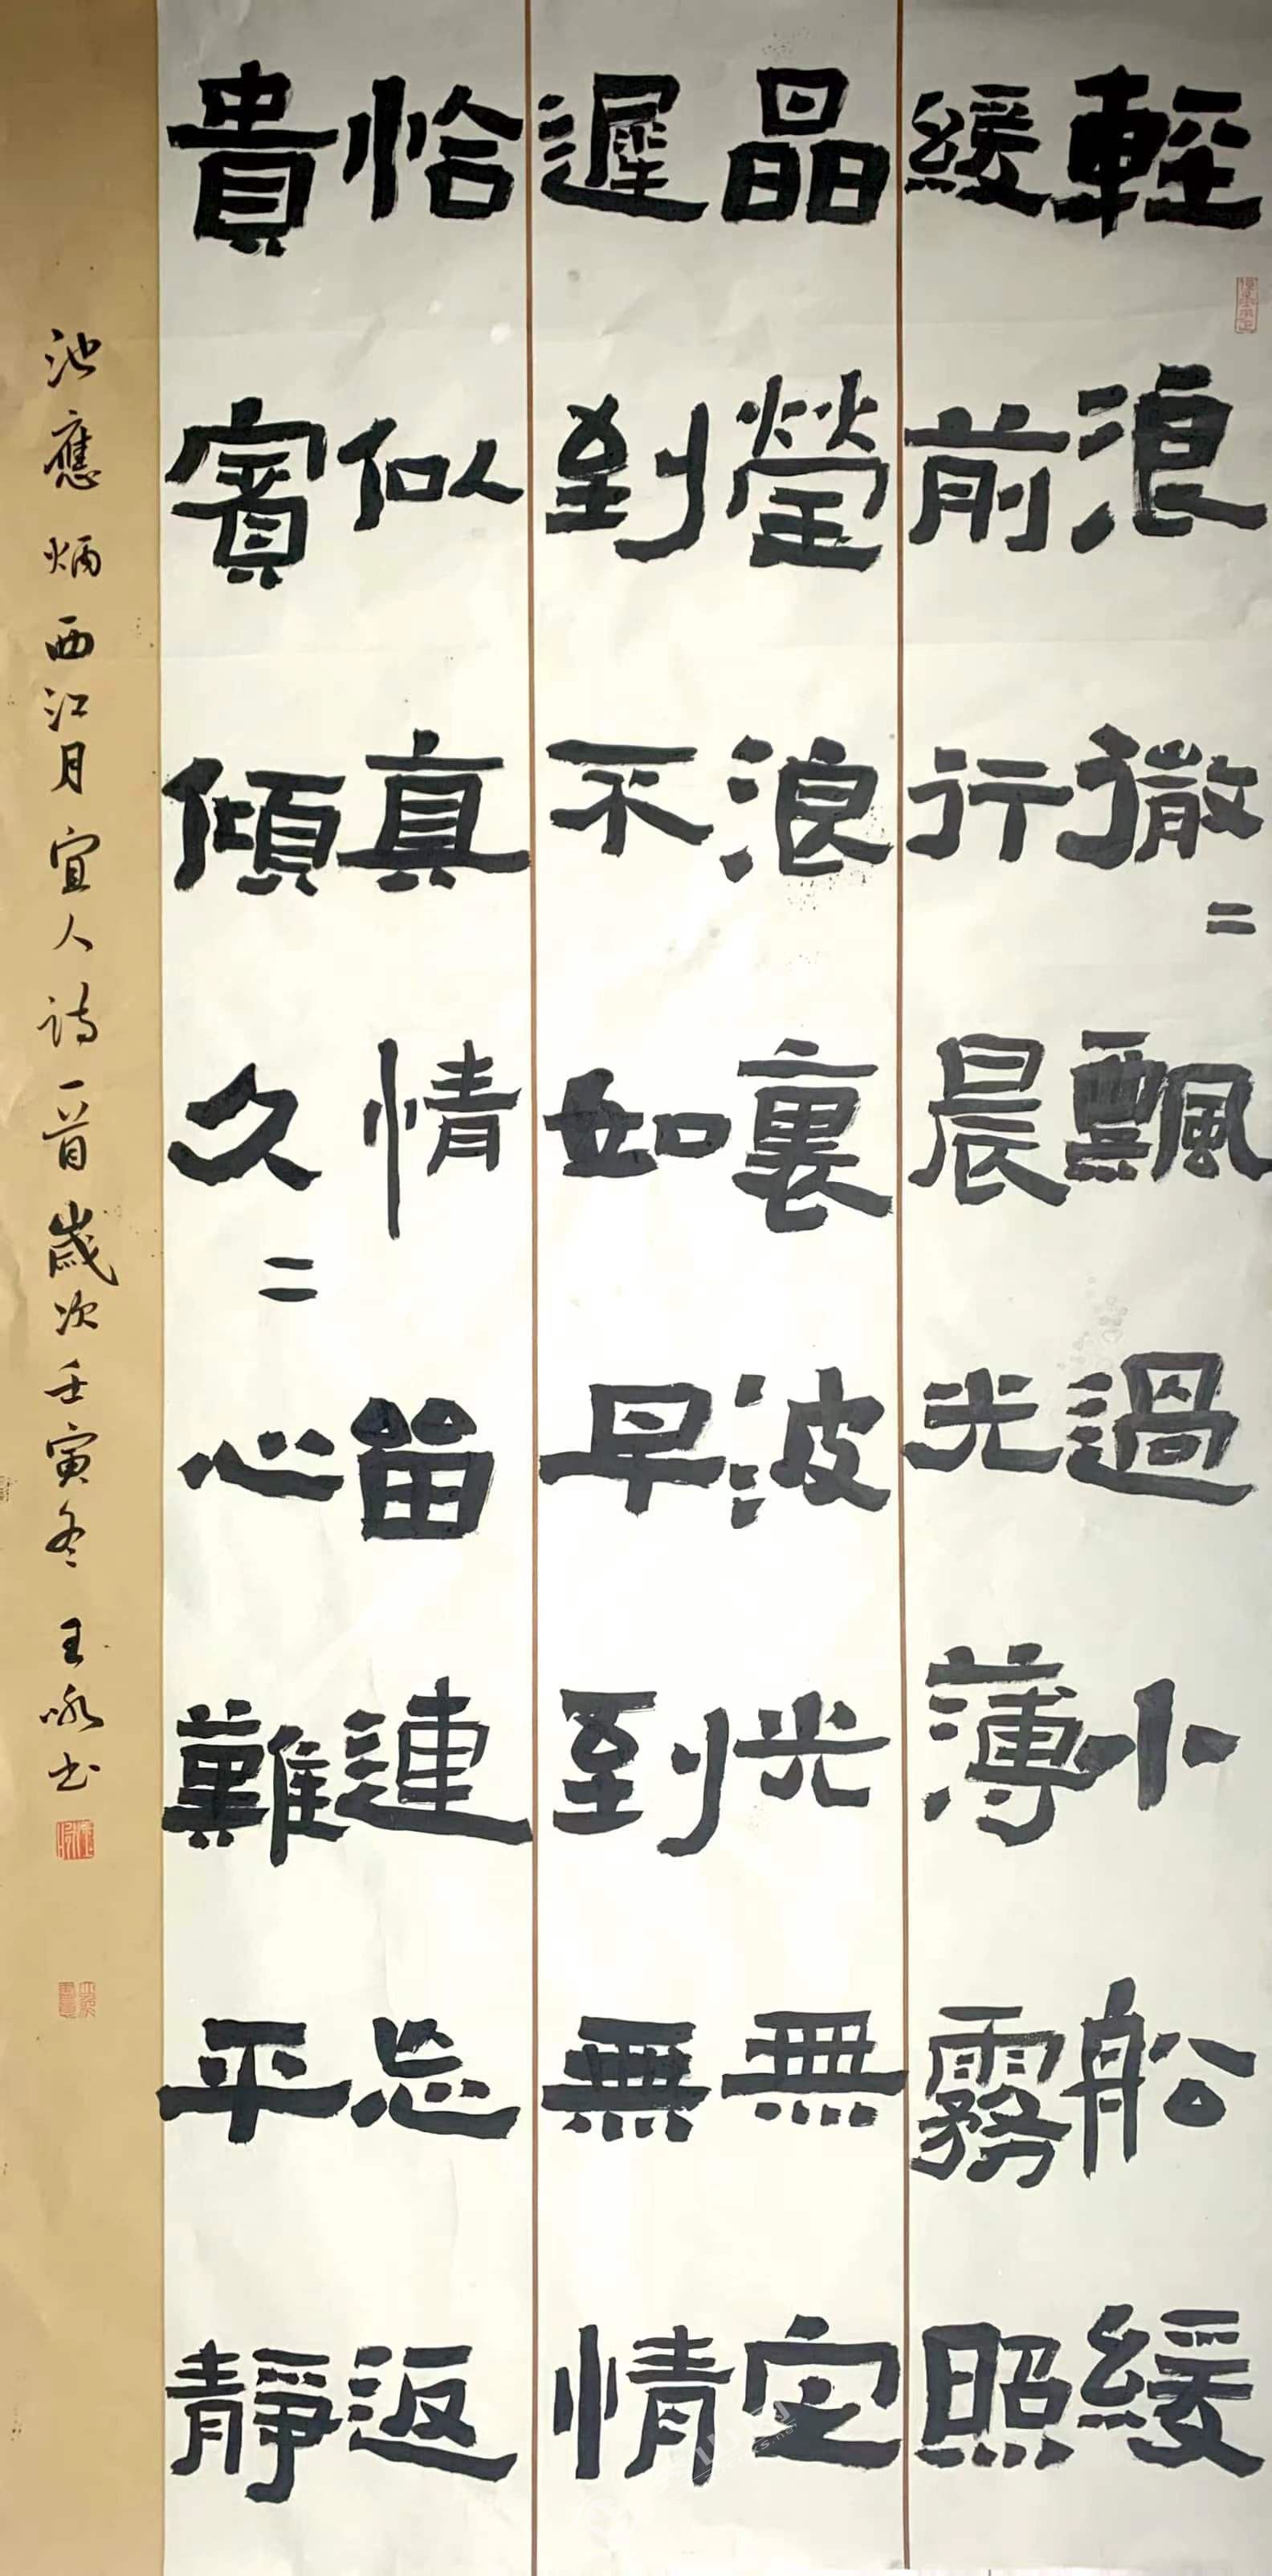 輕浪獙〓飄過小船緩
緩前行晨光薄霧照
晶瑩浪裏波光無定
遲到不如早到無情
恰似真情留連忘返
貴賓傾久〓心難平靜
池應炳西江月宜人詩一首歲次壬寅冬王咏书